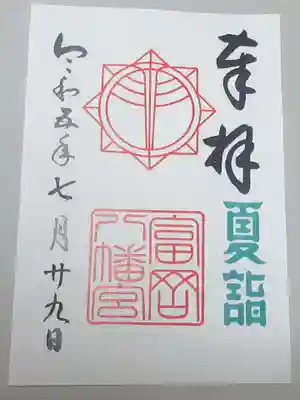 奉拝
夏詣
富岡
八幡宮
令和五年七月廿九日